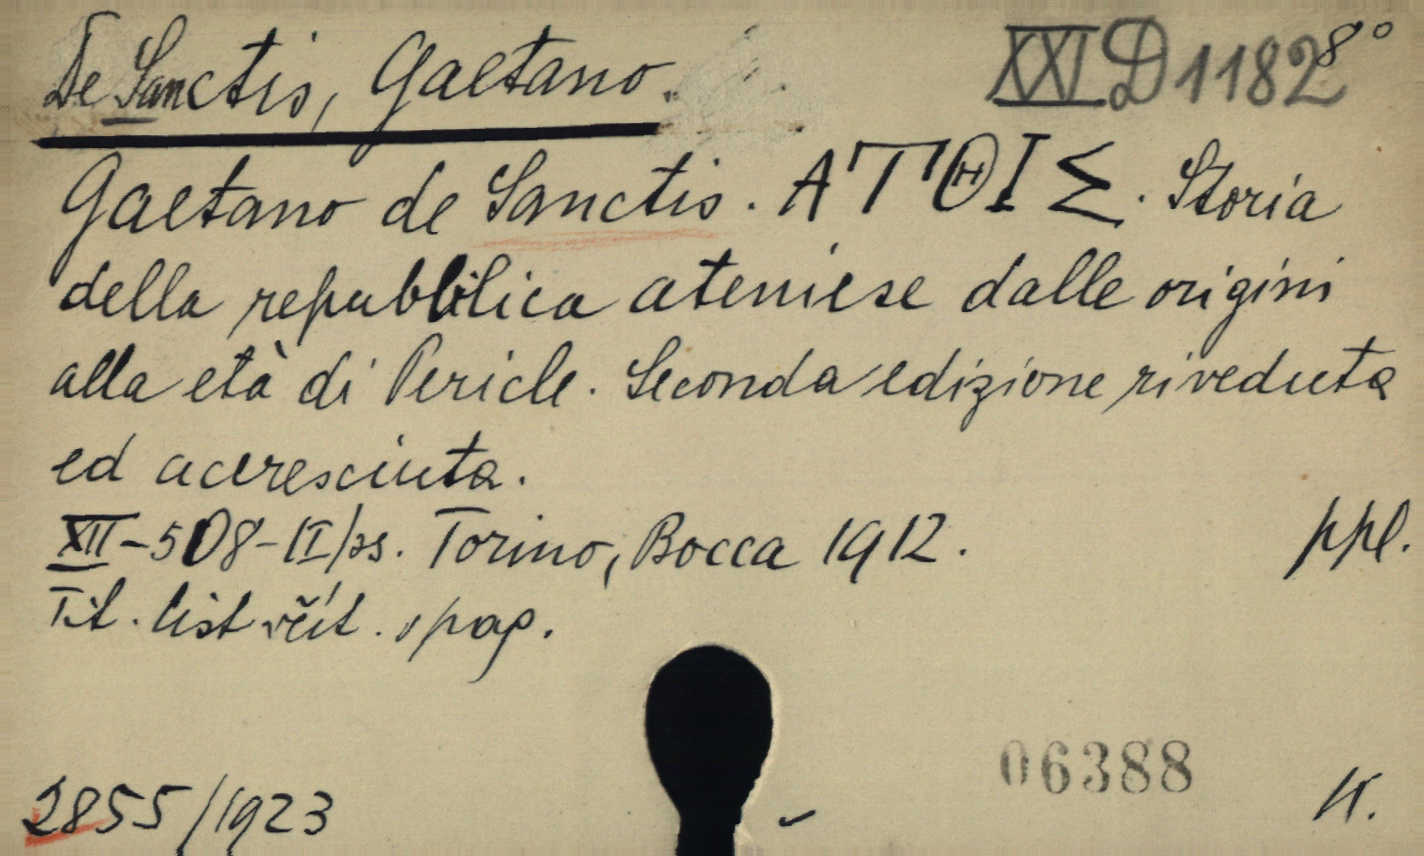 De Sanctis, Gaetano.
XXI D 1182 8°
Gaetano de Sanctis. ΑΤΘΙΣ. Storia
della repubblica ateniese dalle origini
alla età di Pericle. Seconda edizione riveduta
ed accresciuta.
XII-508-II/ss. Torino, Bocca 1912. ppl.
Tit. list včít. v pag.
06388
2855/1923 K.